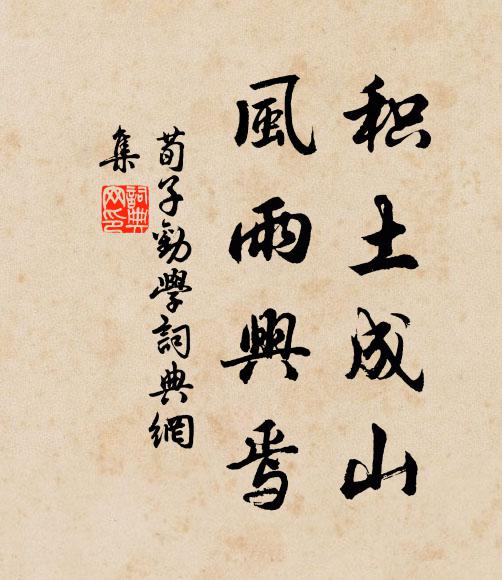 积土成山
風雨興焉
荀子勸學詞典網
集
詞典
网印